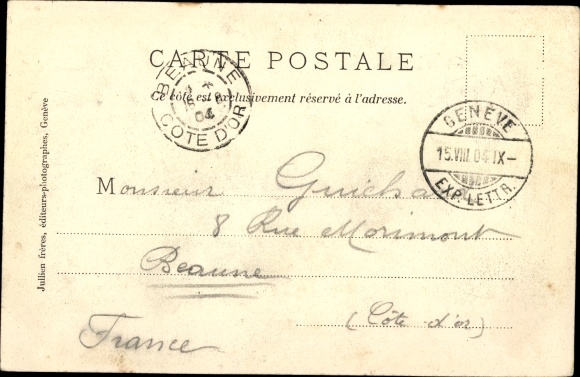 CARTE POSTALE
Ce côté est exclusivement réservé à l'adresse.
BEAUNE
04
COTE D'OR
GENÈVE
15.VIII.04.IX-
EXP. LETTR.
Monsieur
8 Rue Morimont
Beaune
(Côte-d'or)
France
Jullien frères, éditeurs-photographes, Genève